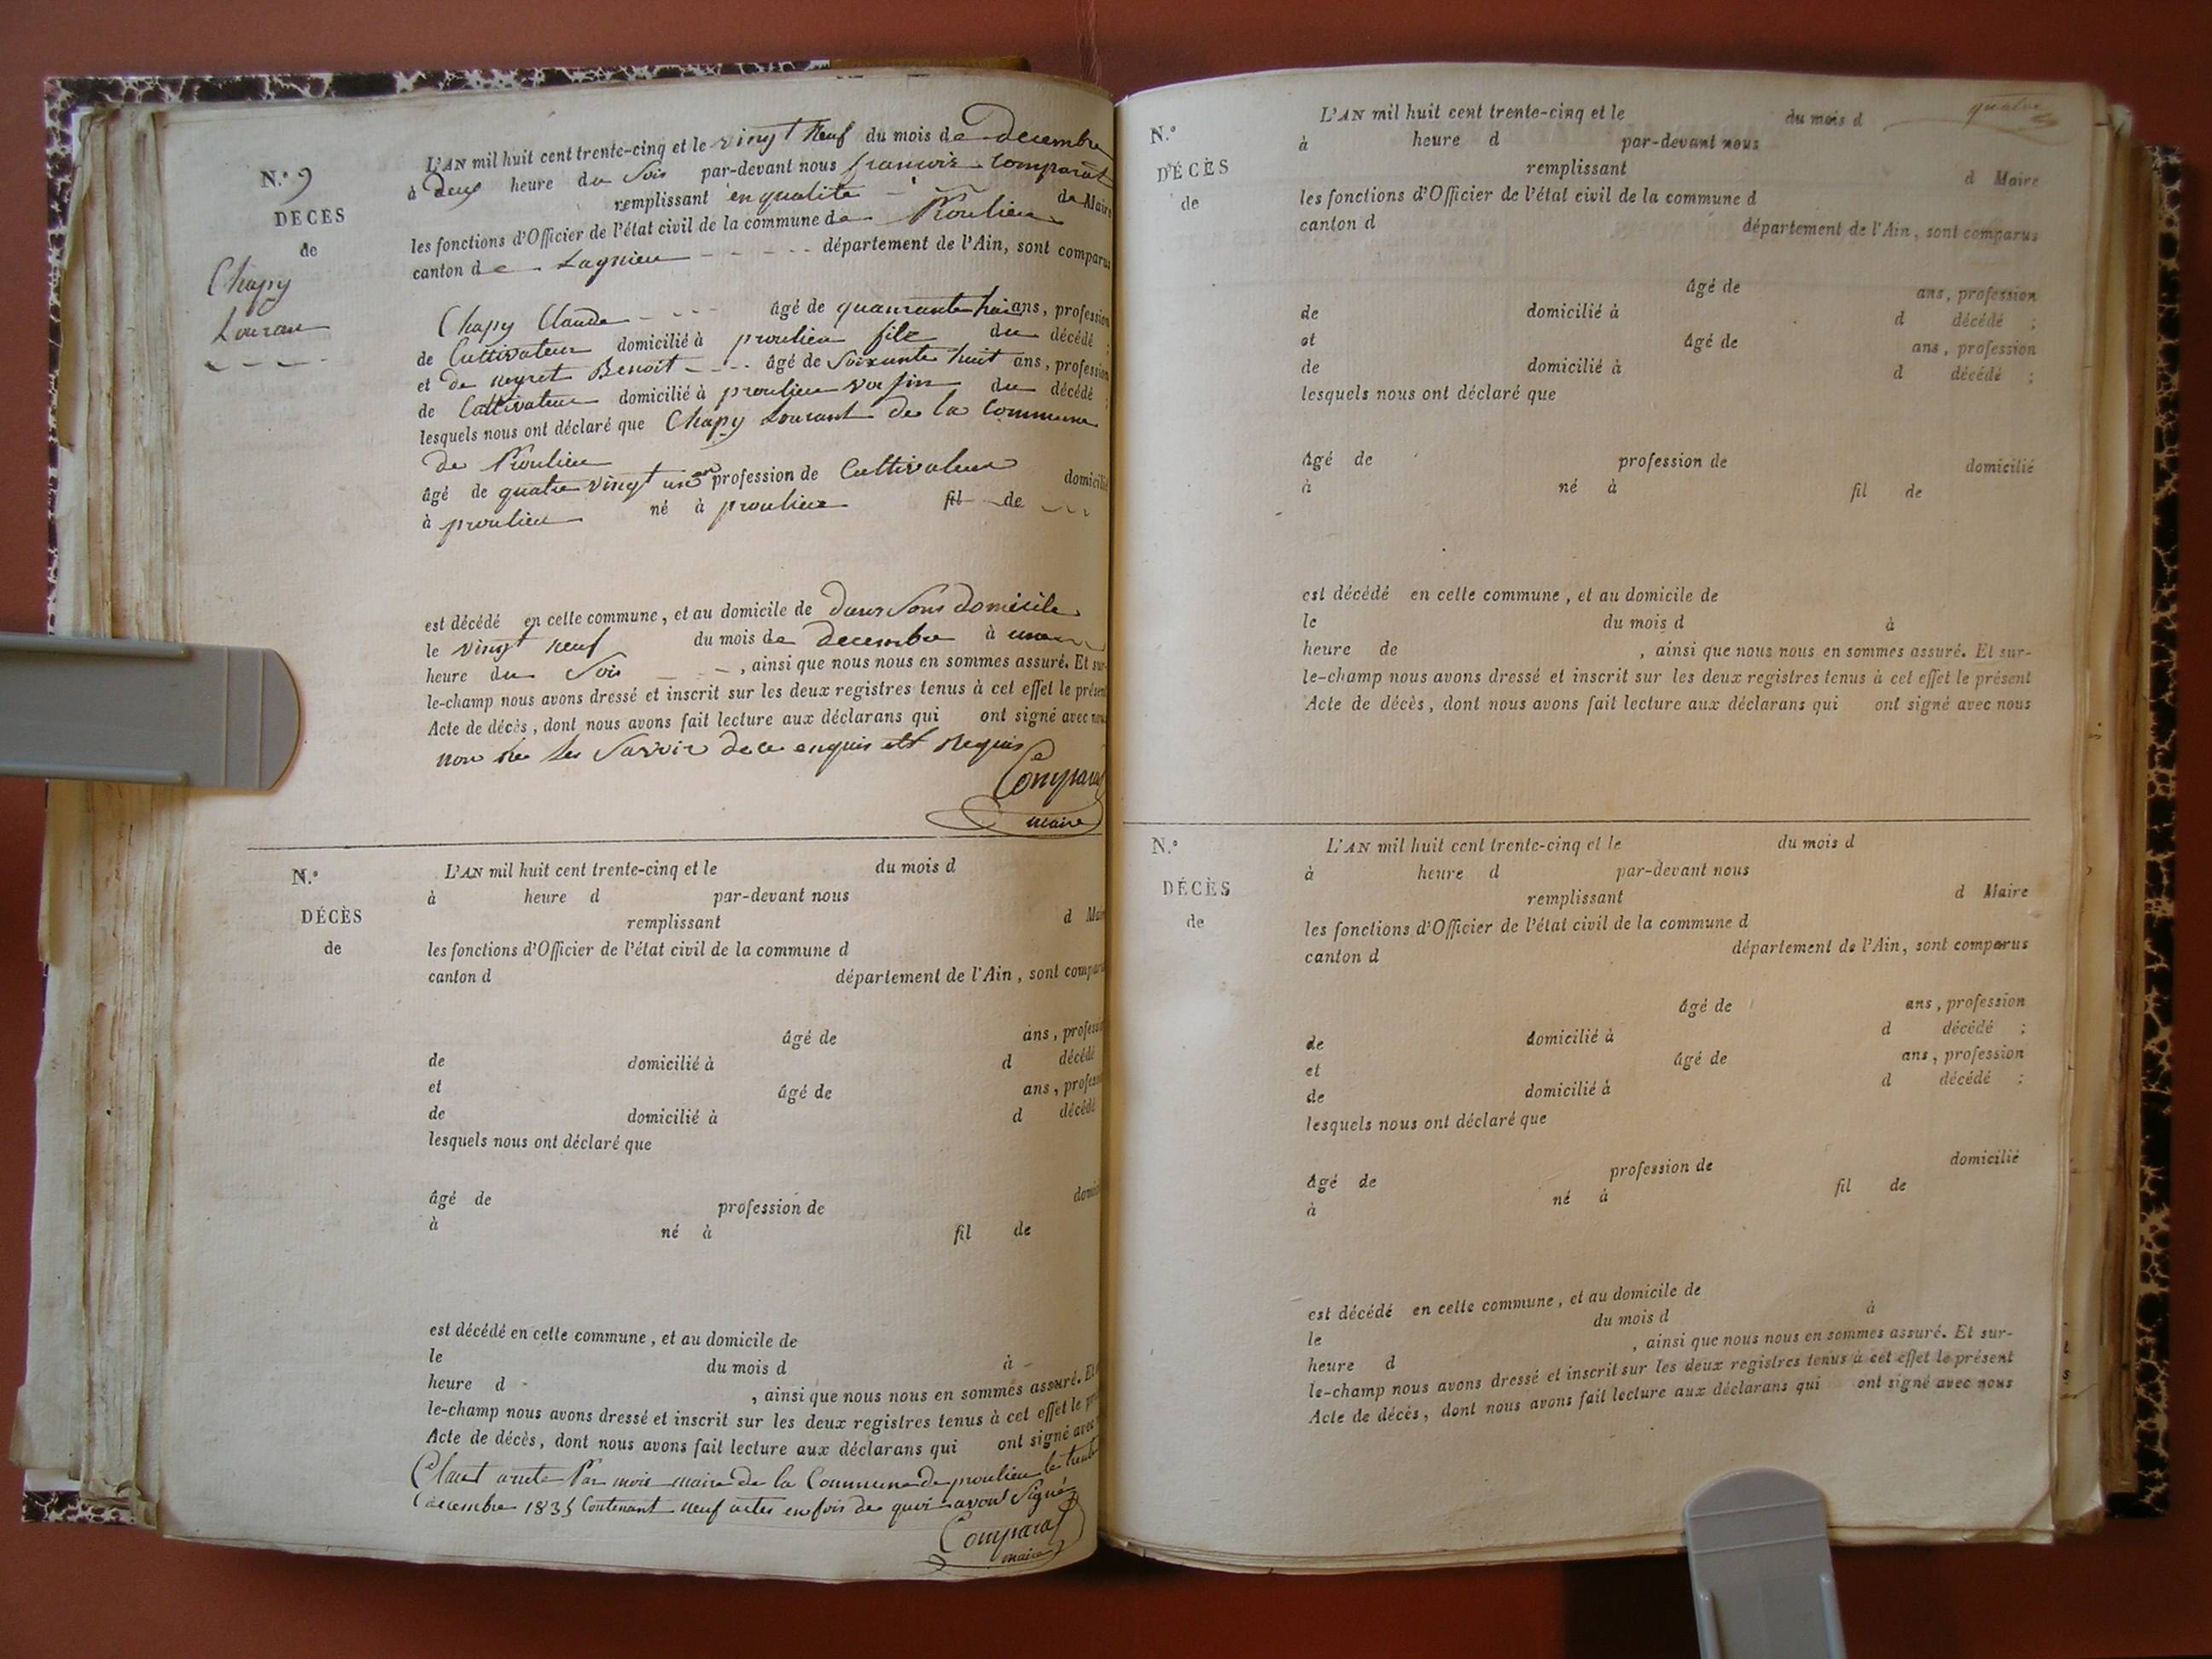 N.° 9
DÉCÈS
de
Chapy
Louran
L'AN mil huit cent trente-cinq et le vingt Neuf du mois de decembre
à deux heure du Soir par-devant nous francois Comparat
remplissant en qualité de Maire
les fonctions d'Officier de l'état civil de la commune de Proulieu
canton de Lagnieu département de l'Ain, sont comparus
Chapy Claude âgé de quanrante huit ans, profession
de Cultivateur domicilié à proulieu filz du décédé ;
et de neyret Benoit âgé de Soixante huit ans, profession
de Cultivateur domicilié à proulieu voisin du décédé ;
lesquels nous ont déclaré que Chapy Lourant de la Commune
de Proulieu
âgé de quatre vingt un profession de Cultivateur domicilié
à proulieu né à proulieu fil de
est décédé en cette commune, et au domicile de dans Sons domicile
le vingt neuf du mois de decembre à une
heure du Soir , ainsi que nous nous en sommes assuré. Et sur-
le-champ nous avons dressé et inscrit sur les deux registres tenus à cet effet le présent
Acte de décès, dont nous avons fait lecture aux déclarans qui ont signé avec nous
non ne les Savoir de ce enquis et Requis
Comparat
maire
N.°
DÉCÈS
de
L'AN mil huit cent trente-cinq et le du mois d
à heure d par-devant nous
remplissant d Maire
les fonctions d'Officier de l'état civil de la commune d
canton d département de l'Ain, sont comparus
âgé de ans, profession
de domicilié à d décédé
et âgé de ans, profession
de domicilié à d décédé
lesquels nous ont déclaré que
âgé de profession de domicilié
à né à fil de
est décédé en cette commune, et au domicile de
le du mois d à
heure d , ainsi que nous nous en sommes assuré. Et
le-champ nous avons dressé et inscrit sur les deux registres tenus à cet effet le
Acte de décès, dont nous avons fait lecture aux déclarans qui ont signé avec
Claut arrete Par mois maire de la Commune de proulieu le
decembre 1835 Contenant neuf actes en fois de quoi avons Signé
Comparat
maire
quatre
N.°
DÉCÈS
de
L'AN mil huit cent trente-cinq et le du mois d
à heure d par-devant nous
remplissant d Maire
les fonctions d'Officier de l'état civil de la commune d
canton d département de l'Ain, sont comparus
âgé de ans, profession
de domicilié à d décédé ;
et âgé de ans, profession
de domicilié à d décédé ;
lesquels nous ont déclaré que
âgé de profession de domicilié
à né à fil de
est décédé en cette commune, et au domicile de
le du mois d à
heure de , ainsi que nous nous en sommes assuré. Et sur-
le-champ nous avons dressé et inscrit sur les deux registres tenus à cet effet le présent
Acte de décès, dont nous avons fait lecture aux déclarans qui ont signé avec nous
N.°
DÉCÈS
de
L'AN mil huit cent trente-cinq et le du mois d
à heure d par-devant nous
remplissant d Maire
les fonctions d'Officier de l'état civil de la commune d
canton d département de l'Ain, sont comparus
âgé de ans, profession
de domicilié à d décédé ;
et âgé de ans, profession
de domicilié à d décédé ;
lesquels nous ont déclaré que
âgé de profession de domicilié
à né à fil de
est décédé en cette commune, et au domicile de
le du mois d à
heure d , ainsi que nous nous en sommes assuré. Et sur-
le-champ nous avons dressé et inscrit sur les deux registres tenus à cet effet le présent
Acte de décès, dont nous avons fait lecture aux déclarans qui ont signé avec nous